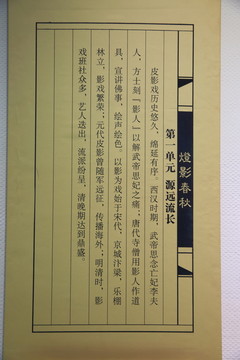 燈影春秋
第一单元 源远流长
皮影戏历史悠久，绵延有序。西汉时期，武帝思念亡妃李夫
人，方士刻『影人』以解武帝思妃之痛；唐代寺僧用影人作道
具，宣讲佛事，绘声绘色。以影为戏始于宋代，京城汴梁，乐棚
林立，影戏繁荣；元代皮影曾随军远征，传播海外；明清时，影
戏班社众多，艺人迭出，流派纷呈，清晚期达到鼎盛。